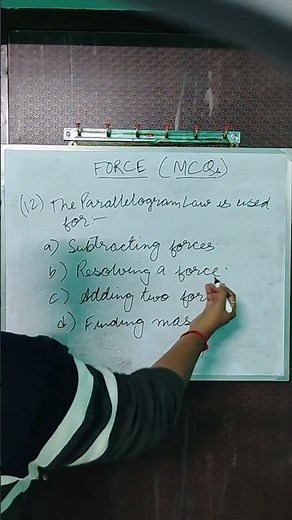 FORCE (MCQs)
(12) The Parallelogram Law is used
for-
a) Subtracting forces
b) Resolving a force.
c) Adding two for
d) Finding mas